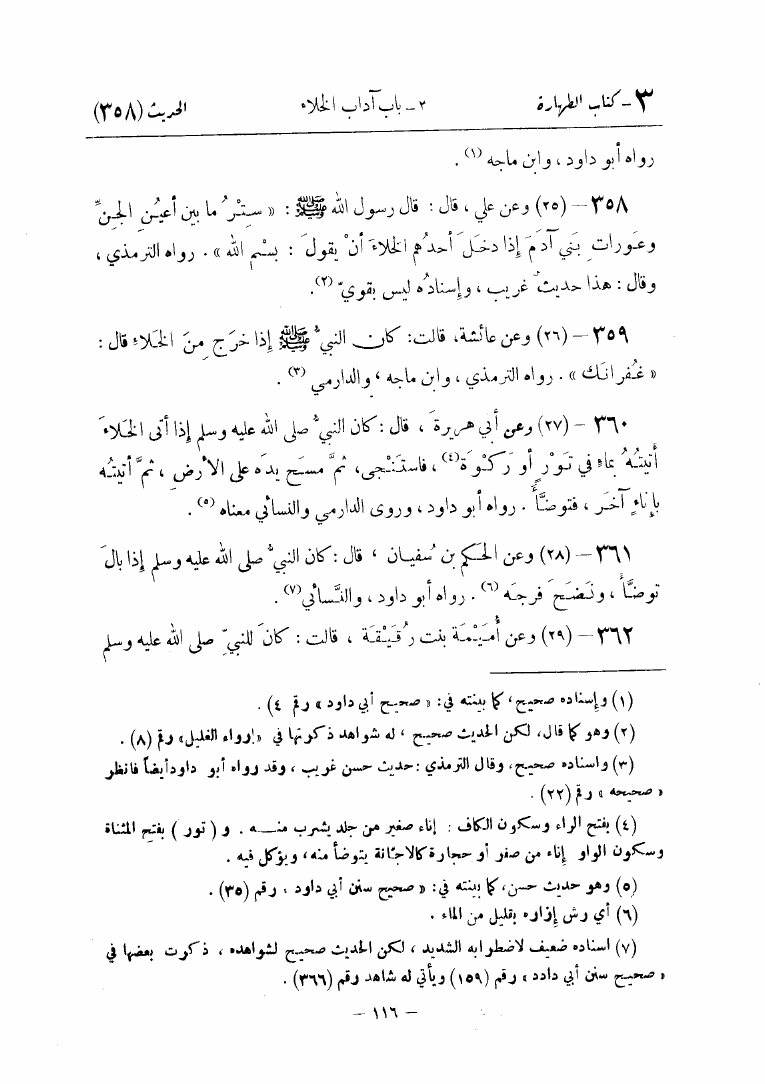 ٣ - كتاب الطهارة ٢ - باب آداب الخلاء الحديث (٣٥٨)
رواه أبو داود ، وابن ماجه (١) .
٣٥٨ - (٢٥) وعن علي ، قال : قال رسول الله ﷺ : « سِتْرُ ما بين أعيُنِ الجنِّ
وعَوراتِ بَني آدَمَ إذا دخَلَ أحدُهم الخلاءَ أنْ يقولَ : بسْمِ الله » . رواه الترمذي ،
وقال : هذا حديثٌ غريب ، وإسنادُه ليس بقويّ (٢) .
٣٥٩ - (٢٦) وعن عائشة، قالت: كان النبيُّ ﷺ إذا خرَج مِنَ الخَلاءِ قال :
« غُفرانَك » . رواه الترمذي ، وابن ماجه ، والدارمي (٣) .
٣٦٠ - (٢٧) وعن أبي هريرةَ ، قال : كان النبيُّ صلى الله عليه وسلم إذا أتى الخلاءَ
أتيتُهُ بماءٍ في تَوْرٍ أو رَكْوَة(٤) ، فاستَنْجى، ثمَّ مسَح يدَه على الأرضِ ، ثمَّ أتيتُه
بإناءٍ آخَر ، فتوضَّأَ . رواه أبو داود ، وروى الدارمي والنسائي معناه (٥) .
٣٦١ - (٢٨) وعن الحكَم بن سُفيان ، قال : كان النبيُّ صلى الله عليه وسلم إذا بالَ
توضَّأَ ، ونَضَحَ فرجَه (٦) . رواه أبو داود ، والنَّسائي(٧) .
٣٦٢ - (٢٩) وعن أُمَيْمَة بنت رُقَيْقَة ، قالت : كانَ للنبيِّ صلى الله عليه وسلم
(١) وإسناده صحيح، كما بينته في: « صحيح أبي داود » رقم ٤) .
(٢) وهو كما قال، لكن الحديث صحيح ، له شواهد ذكرتها في «إرواء الغليل» رقم (٨) .
(٣) واسناده صحيح، وقال الترمذي : حديث حسن غريب ، وقد رواه أبو داود أيضاً فانظر
« صحيحه » رقم (٢٢) .
(٤) بفتح الراء وسكون الكاف : إناء صغير من جلد يشرب منه . و ( تور ) بفتح المثناة
وسكون الواو إناء من صفر أو حجارة كالاجانة يتوضأ منه، ويؤكل فيه .
(٥) وهو حديث حسن، كما بينته في: « صحيح سنن أبي داود . رقم (٣٥) .
(٦) أي رش إزاره بقليل من الماء .
(٧) اسناده ضعيف لاضطرابه الشديد ، لكن الحديث صحيح لشواهده ، ذكرت بعضها في
« صحيح سنن أبي دادد » رقم (١٥٩) ويأتي له شاهد رقم (٣٦٦) .
- ١١٦ -